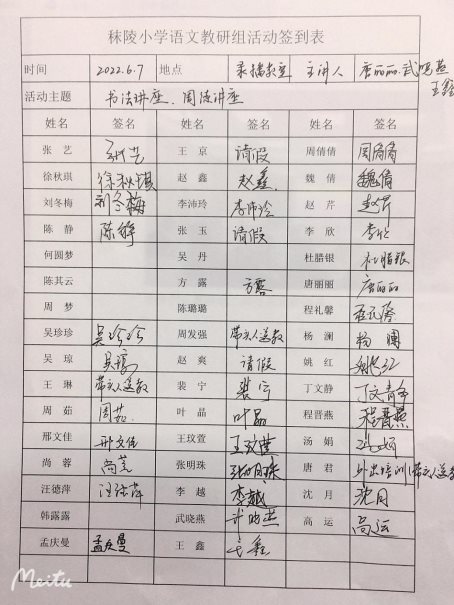 秣陵小学语文教研组活动签到表
时间 2022.6.7 地点 录播教室 主讲人 唐丽丽 武晓燕
王鑫
活动主题 书法讲座、国院讲座
姓名 签名 姓名 签名 姓名 签名
张艺 张艺 王京 请假 周倩倩 周倩倩
徐秋琪 徐秋琪 赵鑫 赵鑫 魏倩 魏倩
刘冬梅 刘冬梅 李沛玲 李沛玲 赵芹 赵芹
陈静 陈静 张玉 请假 李欣 李欣
何圆梦 吴丹 杜腊银 杜腊银
陈其云 方露 方露 唐丽丽 唐丽丽
周梦 陈璐璐 程礼馨 程礼馨
吴珍珍 吴珍珍 周发强 带头人送教 杨澜 杨澜
吴琼 吴琼 赵爽 请假 姚红 姚红
王琳 带头人送教 裴宁 裴宁 丁文静 丁文静
周茹 周茹 叶晶 叶晶 程晋燕 程晋燕
邢文佳 邢文佳 王玟萱 王玟萱 汤娟 汤娟
尚蓉 尚蓉 张明珠 张明珠 唐君 外出培训(带头人送教
汪德萍 汪德萍 李越 李越 沈月 沈月
韩露露 武晓燕 武晓燕 高运 高运
孟庆曼 孟庆曼 王鑫 王鑫
Meitu